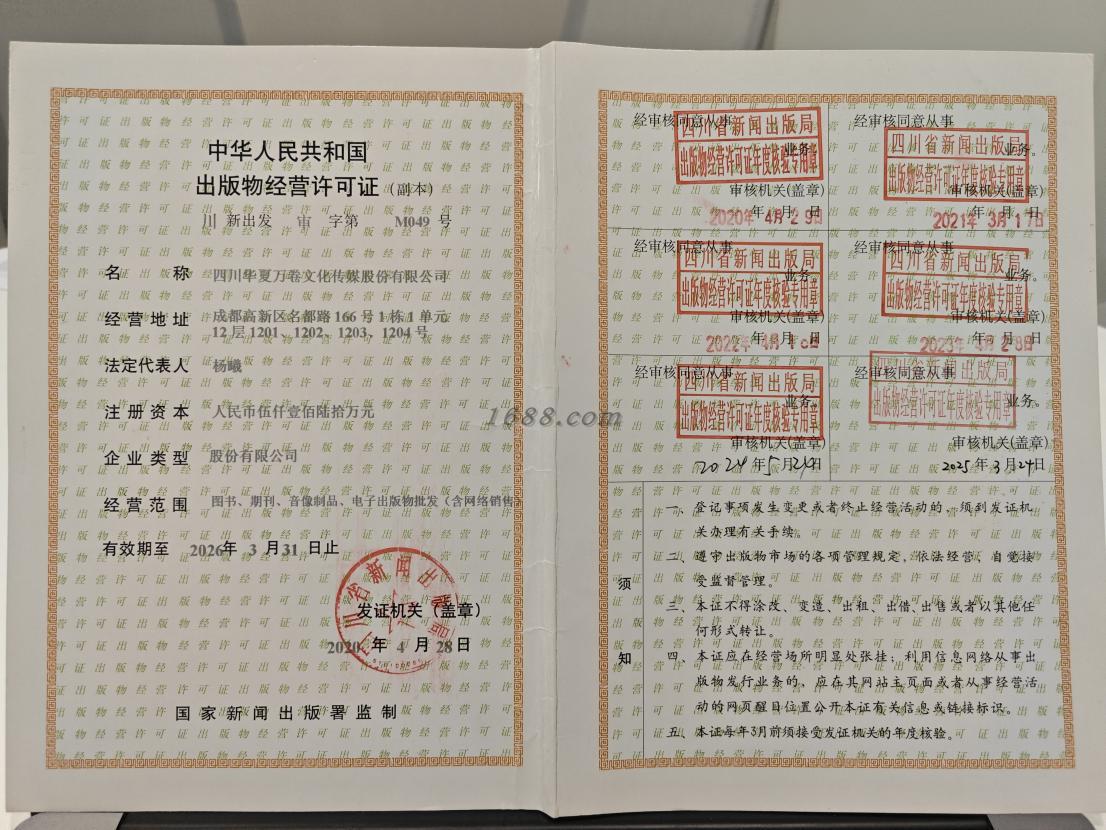 中华人民共和国
出版物经营许可证 (副本)
川 新出发 审 字第 M049 号
名 称 四川华夏万卷文化传媒股份有限公司
经营地址 成都高新区名都路166号1栋1单元
12层1201、1202、1203、1204号
法定代表人 杨曦
注册资本 人民币伍仟壹佰陆拾万元
企业类型 股份有限公司
经营范围 图书、期刊、音像制品、电子出版物批发（含网络销售）
有效期至 2026年 3 月 31 日止
发证机关（盖章）
2020 年 4 月 28 日
国家新闻出版署监制
1688.com
经审核同意从事
四川省新闻出版局
业务。
出版物经营许可证年度核验专用章
审核机关(盖章)
2020年 4月29日
经审核同意从事
四川省新闻出版局
业务。
出版物经营许可证年度核验专用章
审核机关(盖章)
2021年 3月17日
经审核同意从事
四川省新闻出版局
业务。
出版物经营许可证年度核验专用章
审核机关(盖章)
年 月 日
经审核同意从事
四川省新闻出版局
业务。
出版物经营许可证年度核验专用章
审核机关(盖章)
2023年 3月28日
经审核同意从事
四川省新闻出版局
业务。
出版物经营许可证年度核验专用章
审核机关(盖章)
2024年5月24日
经审核同意从事
四川省新闻出版局
业务。
出版物经营许可证年度核验专用章
审核机关(盖章)
2025年3月24日
须知
一、登记事项发生变更或者终止经营活动的，须到发证机
关办理有关手续。
二、遵守出版物市场的各项管理规定，依法经营，自觉接
受监督管理。
三、本证不得涂改、变造、出租、出借、出售或者以其他任
何形式转让。
四、本证应在经营场所明显处张挂；利用信息网络从事出
版物发行业务的，应在其网站主页面或者从事经营活
动的网页醒目位置公开本证有关信息或链接标识。
五、本证每年3月前须接受发证机关的年度核验。